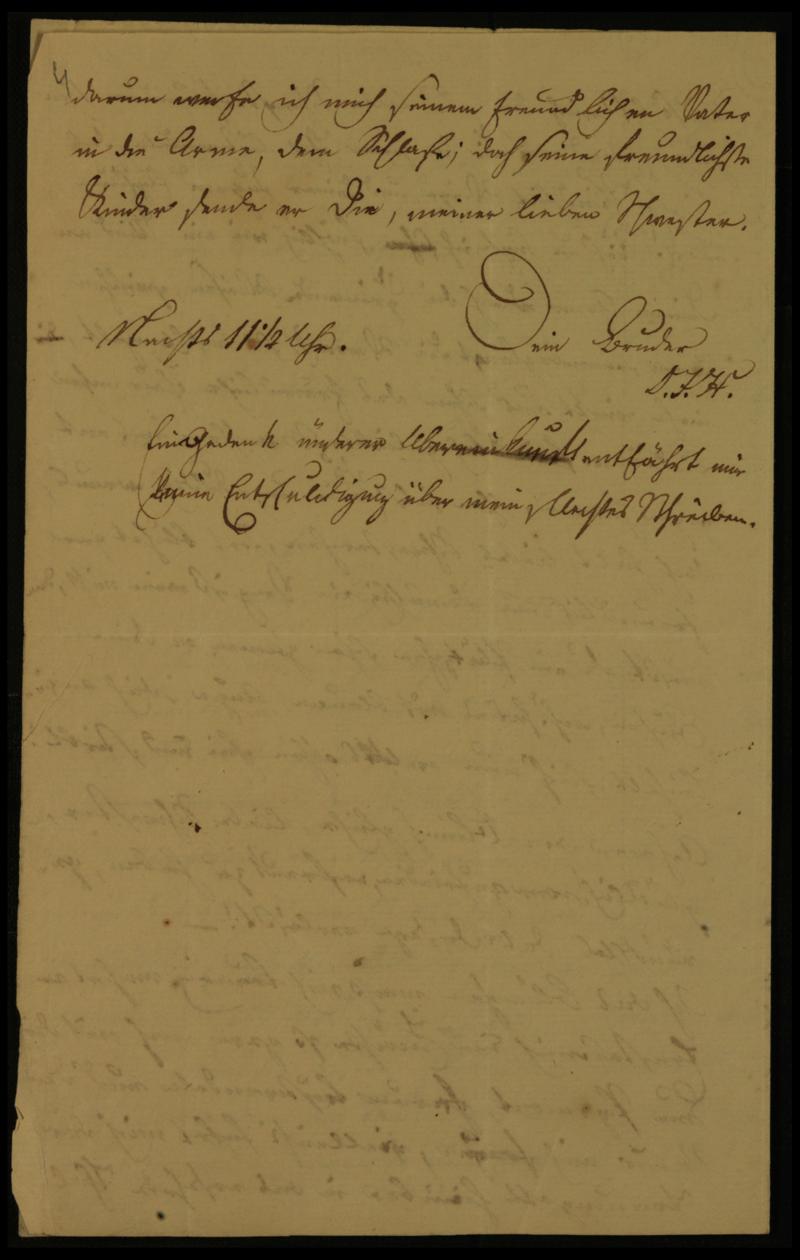 4
darum werfe ich mich seinem freundlichen Vater
in die Arme, dem Schlafe; doch seine freundlichste
Kinder sende er Dir, meiner lieben Schwester.
Nachts 11 1/2 Uhr. Dein Bruder
O.F.H.
Eingedenk unserer Übereinkunft entfährt mir
keine Entschuldigung über mein schlechtes Schreiben.